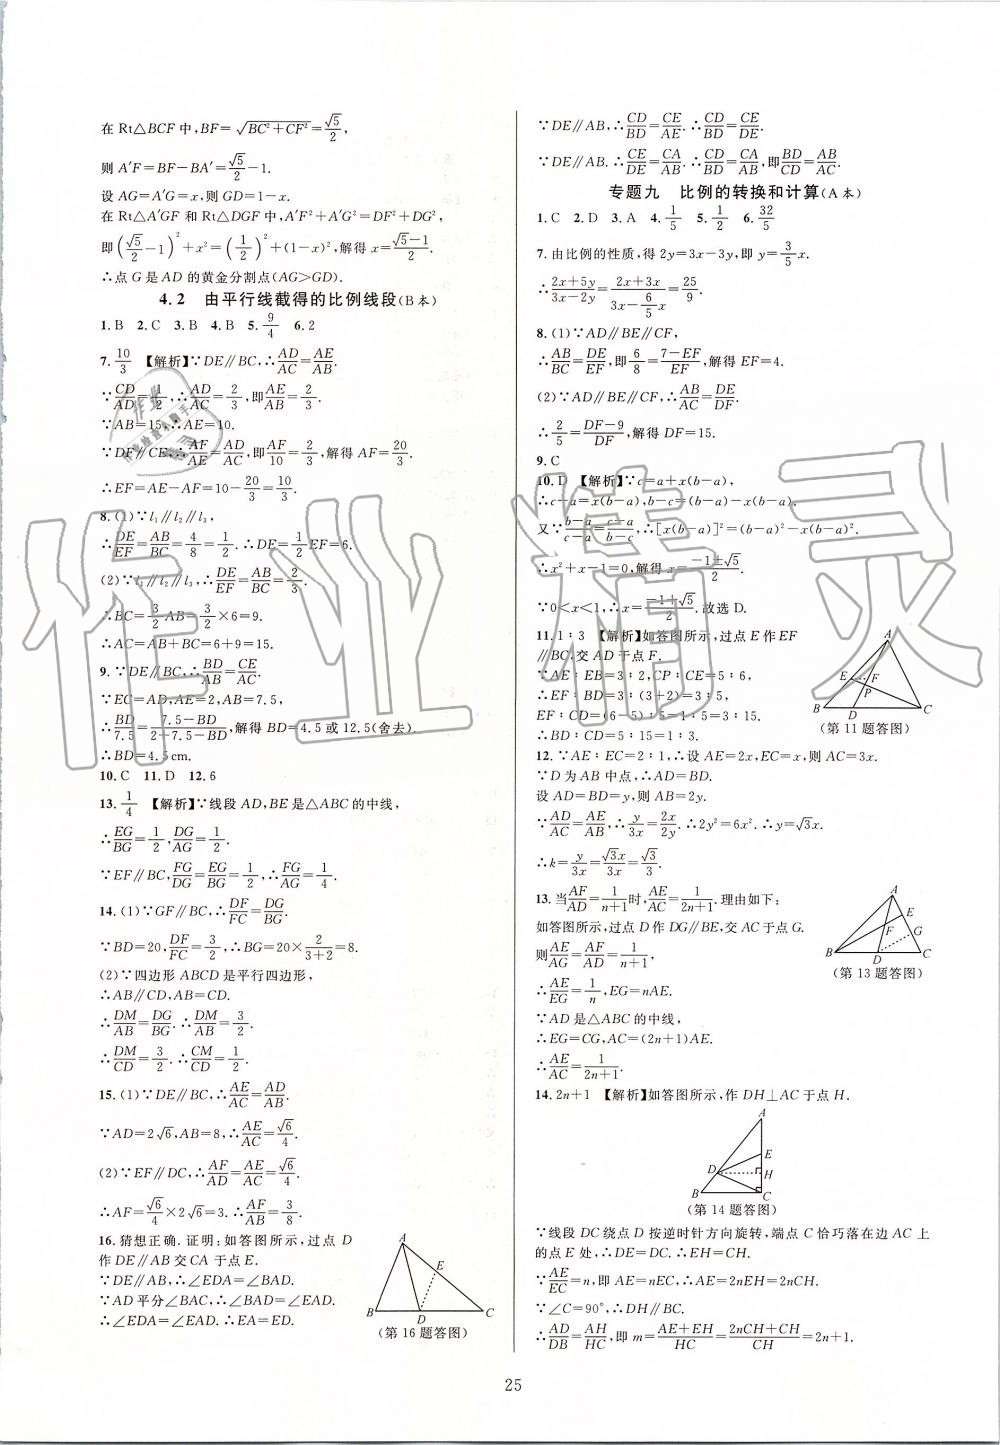 在 Rt△BCF 中,BF=√(BC²+CF²)=√5/2,
则 A′F=BF-BA′=√5/2-1.
设 AG=A′G=x,则 GD=1-x.
在 Rt△A′GF 和 Rt△DGF 中,A′F²+A′G²=DF²+DG²,
即(√5/2-1)²+x²=(1/2)²+(1-x)²,解得 x=(√5-1)/2.
∴点 G 是 AD 的黄金分割点(AG>GD).
4.2 由平行线截得的比例线段(B本)
1.B 2.C 3.B 4.B 5.9/4 6.2
7.10/3 【解析】∵DE∥BC,∴AD/AC=AE/AB.
∵CD/AD=1/2,∴AD/AC=2/3,即AE/AB=2/3.
∵AB=15,∴AE=10.
∵DF∥CE,∴AF/AE=AD/AC,即AF/10=2/3,解得 AF=20/3.
∴EF=AE-AF=10-20/3=10/3.
8.(1)∵l₁∥l₂∥l₃,
∴DE/EF=AB/BC=4/8=1/2.∴DE=1/2EF=6.
(2)∵l₁∥l₂∥l₃,∴DE/EF=AB/BC=2/3.
∴BC=3/2AB=3/2×6=9.
∴AC=AB+BC=6+9=15.
9.∵DE∥BC,∴BD/AB=CE/AC.
∵EC=AD,AE=2,AB=7.5,
∴BD/7.5=(7.5-BD)/(2+7.5-BD),解得 BD=4.5 或 12.5(舍去).
∴BD=4.5 cm.
10.C 11.D 12.6
13.1/4 【解析】∵线段 AD,BE 是△ABC 的中线,
∴EG/BG=1/2,DG/AG=1/2.
∵EF∥BC,FG/DG=EG/BG=1/2.∴FG/AG=1/4.
14.(1)∵GF∥BC,∴DF/FC=DG/BG.
∵BD=20,DF/FC=3/2,∴BG=20×2/(3+2)=8.
(2)∵四边形 ABCD 是平行四边形,
∴AB∥CD,AB=CD.
∴DM/AB=DG/BG.∴DM/AB=3/2.
∴DM/CD=3/2.∴CM/CD=1/2.
15.(1)∵DE∥BC,∴AE/AC=AD/AB.
∵AD=2√6,AB=8,∴AE/AC=√6/4.
(2)∵EF∥DC,∴AF/AD=AE/AC=√6/4.
∴AF=√6/4×2√6=3.∴AF/AB=3/8.
16.猜想正确.证明:如答图所示,过点 D
作 DE∥AB 交 CA 于点 E.
∵DE∥AB,∴∠EDA=∠BAD.
∵AD 平分∠BAC,∴∠BAD=∠EAD.
∴∠EDA=∠EAD.∴EA=ED.
A
E
B
D
C
(第 16 题答图)
∵DE∥AB,∴CD/BD=CE/AE.∴CD/BD=CE/DE.
∵DE∥AB.∴CE/DE=CA/AB.∴CD/BD=CA/AB,即BD/CD=AB/AC.
专题九 比例的转换和计算(A本)
1.C 2.D 3.A 4.1/5 5.1/2 6.32/5
7.由比例的性质,得 2y=3x-3y,即 y=3/5x.
∴(2x+5y)/(3x-2y)=(2x+3x)/(3x-6/5x)=25/9.
8.(1)∵AD∥BE∥CF,
∴AB/BC=DE/EF,即6/8=(7-EF)/EF,解得 EF=4.
(2)∵AD∥BE∥CF,∴AB/AC=DE/DF.
∴2/5=(DF-9)/DF,解得 DF=15.
9.C
10.D 【解析】∵c=a+x(b-a),
∴c-a=x(b-a),b-c=(b-a)-x(b-a).
又∵(b-a)/(c-a)=(c-a)/(b-c),∴[x(b-a)]²=(b-a)²-x(b-a)².
∴x²+x-1=0,解得 x=(-1±√5)/2.
∵0<x<1,∴x=(-1+√5)/2.故选 D.
11.1∶3 【解析】如答图所示,过点 E 作 EF
∥BC,交 AD 于点 F.
∵AE∶EB=3∶2,CP∶CE=5∶6,
∴EF∶BD=3∶(3+2)=3∶5,
EF∶CD=(6-5)∶5=1∶5=3∶15.
∴BD∶CD=5∶15=1∶3.
A
E
F
P
B
D
C
(第 11 题答图)
12.∵AE∶EC=2∶1,∴设 AE=2x,EC=x,则 AC=3x.
∵D 为 AB 中点,∴AD=BD.
设 AD=BD=y,则 AB=2y.
∵AD/AC=AE/AB,∴y/3x=2x/2y.∴2y²=6x².∴y=√3x.
∴k=y/3x=√3x/3x=√3/3.
13.当AF/AD=1/(n+1)时,AE/AC=1/(2n+1).理由如下:
如答图所示,过点 D 作 DG∥BE,交 AC 于点 G.
则AE/AG=AF/AD=1/(n+1),
∴AE/EG=1/n,EG=nAE.
∵AD 是△ABC 的中线,
∴EG=CG,AC=(2n+1)AE.
∴AE/AC=1/(2n+1).
A
E
F
G
B
D
C
(第 13 题答图)
14.2n+1 【解析】如答图所示,作 DH⊥AC 于点 H.
A
E
D
H
B
C
(第 14 题答图)
∵线段 DC 绕点 D 按逆时针方向旋转,端点 C 恰巧落在边 AC 上
的点 E 处,∴DE=DC.∴EH=CH.
∵AE/EC=n,即 AE=nEC,∴AE=2nEH=2nCH.
∵∠C=90°,∴DH∥BC.
∴AD/DB=AH/HC,即 m=(AE+EH)/HC=(2nCH+CH)/CH=2n+1.
25
作业精灵